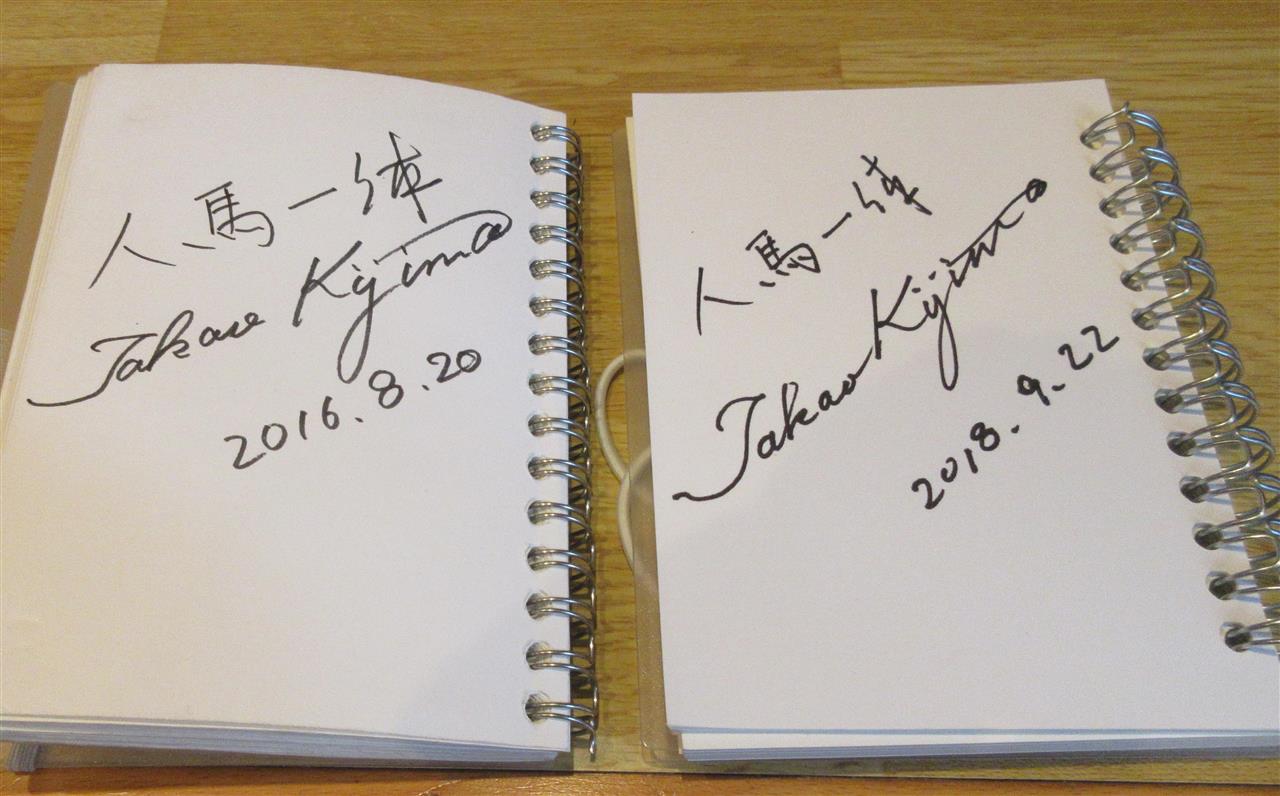 人馬一体
Takao Kijima
2016.8.20
人馬一体
Takao Kijima
2018.9.22